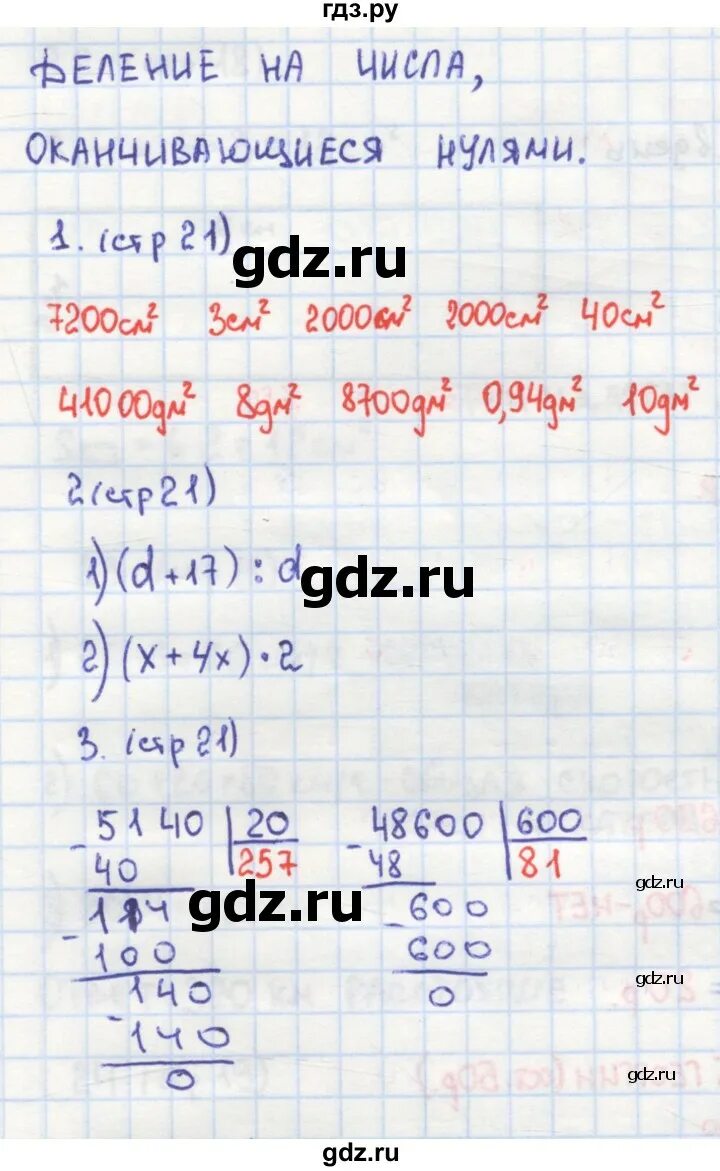 гдз.ру
ДЕЛЕНИЕ НА ЧИСЛА,
ОКАНЧИВАЮЩИЕСЯ НУЛЯМИ.
1. (стр 21)
gdz.ru
7200см² 3см² 2000см² 2000см² 40см²
41000дм² 8дм² 8700дм² 0,94дм² 10дм²
2(стр 21)
1) (d + 17) : d
gdz.ru
2) (x + 4x) · 2
3. (стр 21)
5140 20 48600 600
- 40 257 - 48 81
gdz.ru
114 gdz.ru - 600
- 100 600
gdz.ru
140 0
- 140
0
gdz.ru
gdz.ru